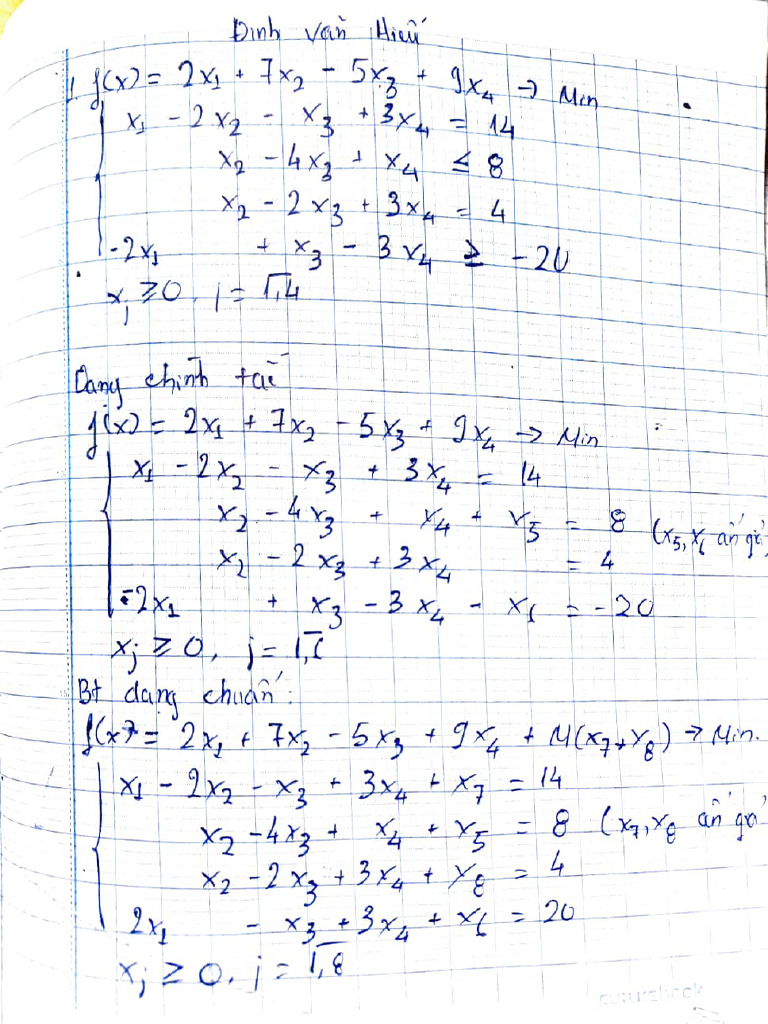 Đinh Văn Hiếu
1 f(x) = 2x₁ + 7x₂ - 5x₃ + 9x₄ → Min
x₁ - 2x₂ - x₃ + 3x₄ = 14
x₂ - 4x₃ + x₄ ≤ 8
x₂ - 2x₃ + 3x₄ = 4
-2x₁ + x₃ - 3x₄ ≥ -20
xⱼ ≥ 0, j = 1,4
Dạng chính tắc
f(x) = 2x₁ + 7x₂ - 5x₃ + 9x₄ → Min
x₁ - 2x₂ - x₃ + 3x₄ = 14
x₂ - 4x₃ + x₄ + x₅ = 8 (x₅, x₆ ẩn
x₂ - 2x₃ + 3x₄ = 4
-2x₁ + x₃ - 3x₄ - x₆ = -20
xⱼ ≥ 0, j = 1,6
Bt dạng chuẩn:
f(x) = 2x₁ + 7x₂ - 5x₃ + 9x₄ + M(x₇+x₈) → Min.
x₁ - 2x₂ - x₃ + 3x₄ + x₇ = 14
x₂ - 4x₃ + x₄ + x₅ = 8 (x₇, x₈ ẩn giả
x₂ - 2x₃ + 3x₄ + x₈ = 4
2x₁ - x₃ + 3x₄ + x₆ = 20
xⱼ ≥ 0, j = 1,8